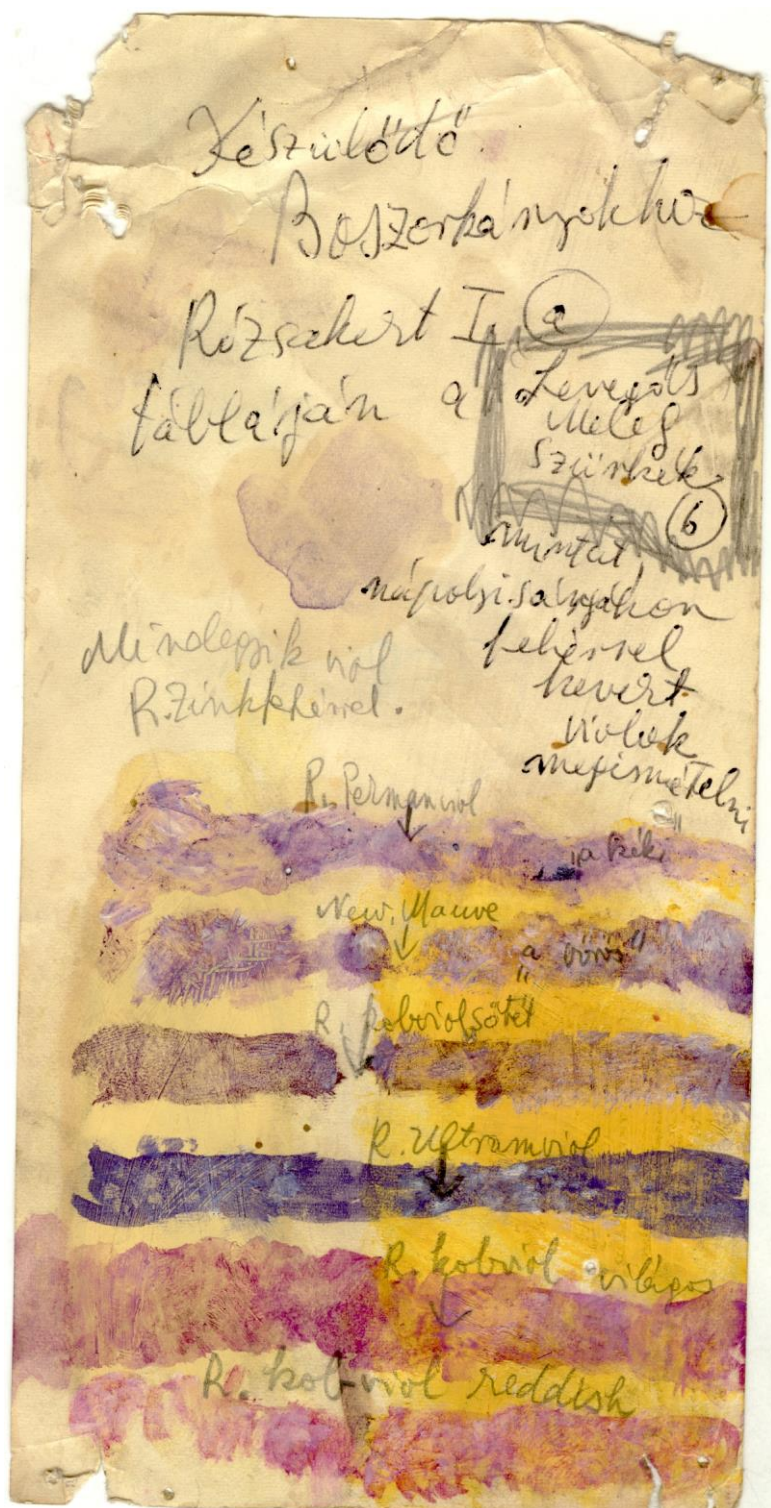 Készülődő
Boszorkányokhoz
Rózsakert I. a
táblájján a Levegős
Meleg
Szürkék
b
mintát,
nápolyisárgákon
fehérrel
kevert
violok
megismételni
Mindegyik viol
R. Zinkfehérrel.
R. Permanviol
"a kék"
New. Mauve
"a vörös"
R. kobviolsötét
R. Ultramviol
R. kobviol világos
R. kobviol reddish